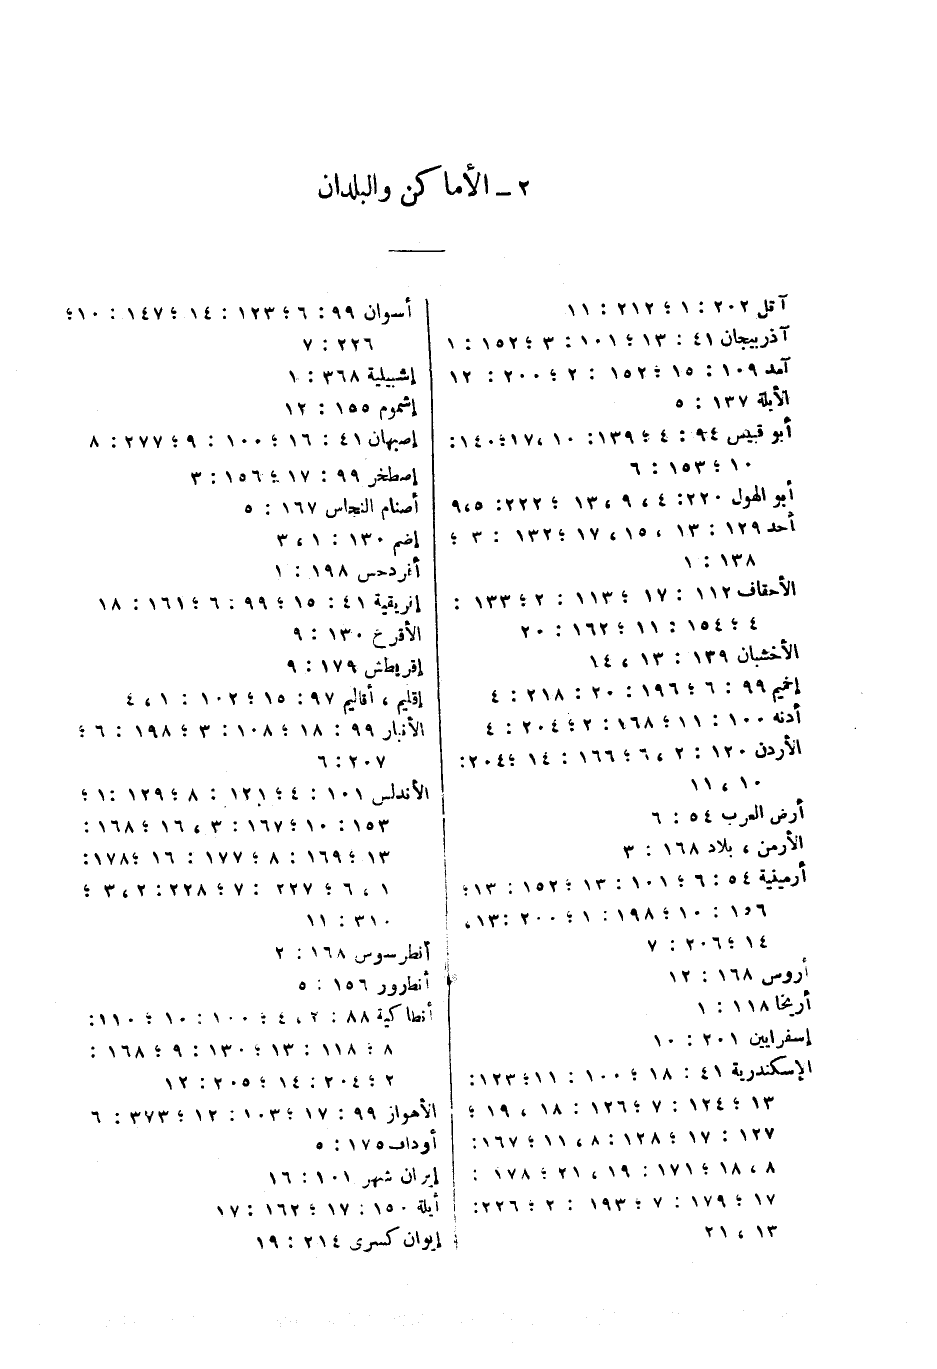 ٢ ــ الأماكن والبلدان
آقل ٢٠٢ : ١ ؛ ٢١٢ : ١١
آذربيجان ٤١ : ١٣ ؛ ١٠١ : ٣ ؛ ١٥٢ : ١
آمد ١٠٩ : ١٥ ؛ ١٥٢ : ٢ ؛ ٢٠٠ : ١٢
الأبلة ١٣٧ : ٥
أبو قبيس ٩٤ : ٤ ؛ ١٣٩ : ١٠ ، ١٧ ؛ ١٤٠ :
١٠ ؛ ١٥٣ : ٦
أبو الهول ٢٢٠ : ٤ ، ٩ ، ١٣ ؛ ٢٢٢ : ٥ ، ٩
أحد ١٢٩ : ١٣ ، ١٥ ، ١٧ ؛ ١٣٢ : ٣ ؛
١٣٨ : ١
الأحقاف ١١٢ : ١٧ ؛ ١١٣ : ٢ ؛ ١٣٣ :
٤ ؛ ١٥٤ : ١١ ؛ ١٦٢ : ٢٠
الأخشبان ١٣٩ : ١٣ ، ١٤
إخميم ٩٩ : ٦ ؛ ١٩٦ : ٢٠ : ٢١٨ : ٤
أدنه ١٠٠ : ١١ ؛ ١٦٨ : ٢ ؛ ٢٠٤ : ٤
الأردن ١٢٠ : ٢ ، ٦ ؛ ١٦٦ : ١٤ ؛ ٢٠٤ :
١٠ ، ١١
أرض العرب ٥٤ : ٦
الأرمن ، بلاد ١٦٨ : ٣
أرمينية ٥٤ : ٦ ؛ ١٠١ : ١٣ ؛ ١٥٢ : ١٣ ؛
١٥٦ : ١٠ ؛ ١٩٨ : ١ ؛ ٢٠٠ : ١٣ ،
١٤ ؛ ٢٠٦ : ٧
أروس ١٦٨ : ١٢
أريحا ١١٨ : ١
إسفرايين ٢٠١ : ١٠
الإسكندرية ٤١ : ١٨ ؛ ١٠٠ : ١١ ؛ ١٢٣ :
١٣ ؛ ١٢٤ : ٧ ؛ ١٢٦ : ١٨ ، ١٩ ؛
١٢٧ : ١٧ ؛ ١٢٨ : ٨ ، ١١ ؛ ١٦٧ :
٨ ، ١٨ ؛ ١٧١ : ١٩ ، ٢١ ؛ ١٧٨ :
١٧ ؛ ١٧٩ : ٧ ؛ ١٩٣ : ٢ ؛ ٢٢٦ :
١٣ ، ٢١
أسوان ٩٩ : ٦ ؛ ١٢٣ : ١٤ ؛ ١٤٧ : ١٠ ؛
٢٢٦ : ٧
إشبيلية ٣٦٨ : ١
إشموم ١٥٥ : ١٢
إصبهان ٤١ : ١٦ ؛ ١٠٠ : ٩ ؛ ٢٧٧ : ٨
إصطخر ٩٩ : ١٧ ؛ ١٥٦ : ٣
أصنام النجاس ١٦٧ : ٥
إضم ١٣٠ : ١ ، ٣
أغردحس ١٩٨ : ١
إفريقية ٤١ : ١٥ ؛ ٩٩ : ٦ ؛ ١٦١ : ١٨
الأقرخ ١٣٠ : ٩
إقريطش ١٧٩ : ٩
إقليم ، أقاليم ٩٧ : ١٥ ؛ ١٠٢ : ١ ، ٤
الأنبار ٩٩ : ١٨ ؛ ١٠٨ : ٣ ؛ ١٩٨ : ٦ ؛
٢٠٧ : ٦
الأندلس ١٠١ : ٤ ؛ ١٢١ : ٨ ؛ ١٢٩ : ١ ؛
١٥٣ : ١٠ ؛ ١٦٧ : ٣ ، ١٦ ؛ ١٦٨ :
١٣ ؛ ١٦٩ : ٨ ؛ ١٧٧ : ١٦ ؛ ١٧٨ :
١ ، ٦ ؛ ٢٢٧ : ٧ ؛ ٢٢٨ : ٢ ، ٣ ؛
٣١٠ : ١١
أنطرسوس ١٦٨ : ٢
أنطرور ١٥٦ : ٥
أنطاكية ٨٨ : ٢ ، ٤ ؛ ١٠٠ : ١٠ ؛ ١١٠ :
٨ ؛ ١١٨ : ١٣ ؛ ١٣٠ : ٩ ؛ ١٦٨ :
٢ ؛ ٢٠٤ : ١٤ ؛ ٢٠٥ : ١٢
الأهواز ٩٩ : ١٧ ؛ ١٠٣ : ١٢ ؛ ٣٧٣ : ٦
أوداف ١٧٥ : ٥
إيران شهر ١٠١ : ١٦
أيلة ١٥٠ : ١٧ ؛ ١٦٢ : ١٧
إيوان كسرى ٢١٤ : ١٩